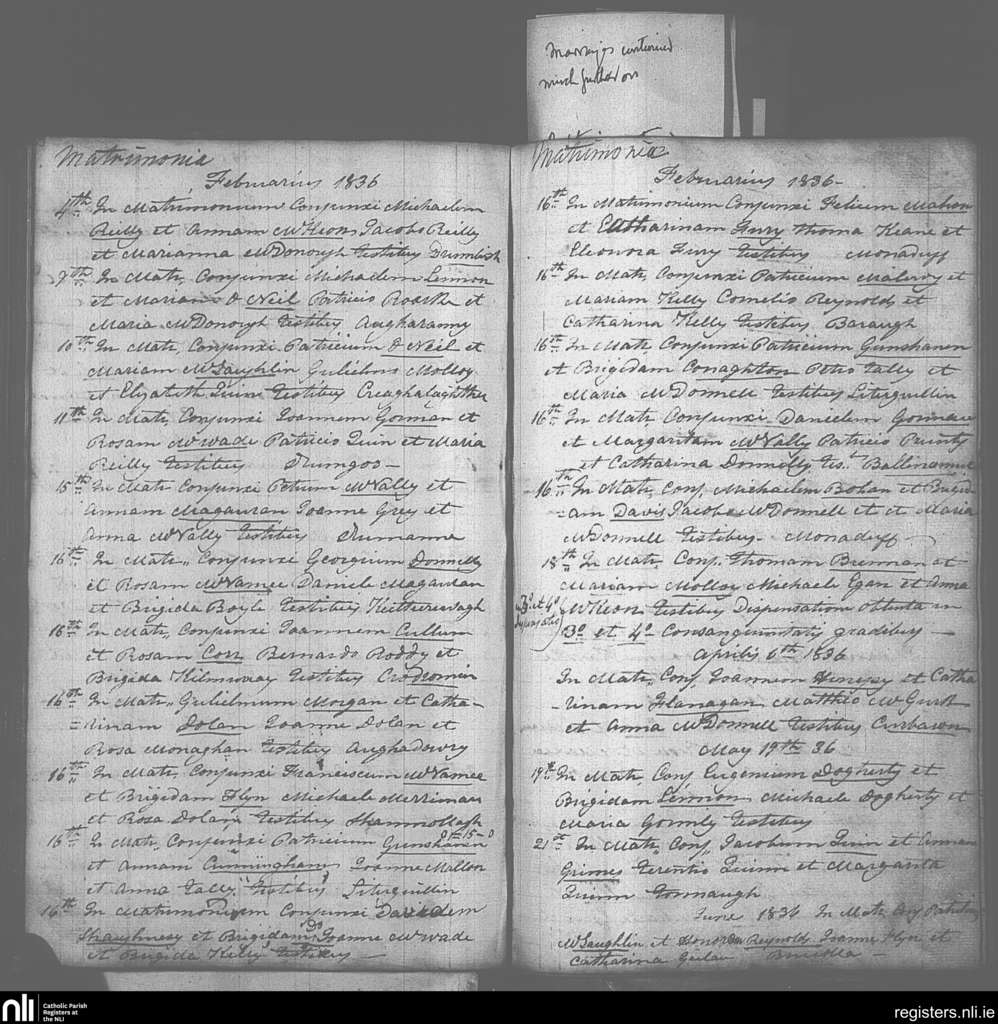 Marriages continued
much further on
Matrimonia
Februarius 1836
4th In Matrimonium Conjunxi Michaelem
Reilly et Annam McKeon, Jacobo Reilly
et Marianna McDonough Testibus Drumlish
9th In Mat: Conjunxi Michaelem Lennon
et Mariam O Neil Patricio et
Maria McDonough Testibus
10th In Mat: Conjunxi Patricium O Neil et
Mariam McLaughlin Gulielmo Molloy
et Elizabeth Quin Testibus
11th In Mat: Conjunxi Joannem Gorman et
Rosam McWade Patricio Quin et Maria
Reilly Testibus
15th In Mat: Conjunxi Petrum McNally et
Annam Magauran Joanne Grey et
Anna McNally Testibus
16th In Mat: Conjunxi Georgium Donnelly
et Rosam McNamee Daniele Magauran
et Brigida Boyle Testibus
16th In Mat: Conjunxi Joannem Cullum
et Rosam Cox Bernardo Roddy et
Brigida Testibus
16th In Mat: Gulielmum Morgan et Catha-
rinam Dolan Joanne Dolan et
Rosa Monaghan Testibus Aughadowry
16th In Mat: Conjunxi Franciscum McNamee
et Brigidam Flyn Michaele Merriman
et Rosa Dolan Testibus
16th In Mat: Conjunxi Patricium Gunshanan
et Annam Cunningham Joanne Mallon
et Anna Tally Testibus
16th In Matrimonium Conjunxi Davidem
Shaughnesy et Brigidam Joanne McWade
et Brigida Kelly Testibus
Matrimonia
Februarius 1836
16th In Matrimonium Conjunxi Felicem Mahon
et Catharinam Fury Thoma Keane et
Eleonora Fury Testibus Monaduff
16th In Mat: Conjunxi Patricium et
Mariam Kelly Cornelio Reynolds et
Catharina Kelly Testibus Baraugh
16th In Mat: Conjunxi Patricium Gunshanan
et Brigidam Conaghton Petro Tally et
Maria McDonnell Testibus
16th In Mat: Conjunxi Danielem
et Margaritam McNally Patricio Prunty
et Catharina Donnelly Tes:t
16th In Mat: Conj: Michaelem Bohan et Brigid-
am Davis Jacobo McDonnell et et Maria
McDonnell Testibus Monaduff
18th In Mat: Conj: Thomam Brennan et
Mariam Molloy Michaele Egan et Anna
McKeon Testibus Dispensatione obtenta in
3o et 4o Consanguinitatis gradibus
in 3o et 4o
Dispensatio
Aprilis 6th 1836
In Mat: Conj: Joannem et Catha
-rinam Flanagan Mattheo McGurk
et Anna McDonnell Testibus
May 19th 36
19th In Mat: Conj: Eugenium Dogherty et
Brigidam Lennon Michaele Dogherty et
Maria Gormly Testibus
21st In Mat: Conj: Jacobum Quin et Annam
Grimes Terentio Quinn et Margarita
Quinn
June 1836 In Mat: Conj
McLaughlin et Reynolds Joanne Flyn et
Catharina
nli Catholic Parish
Registers at
the NLI
registers.nli.ie